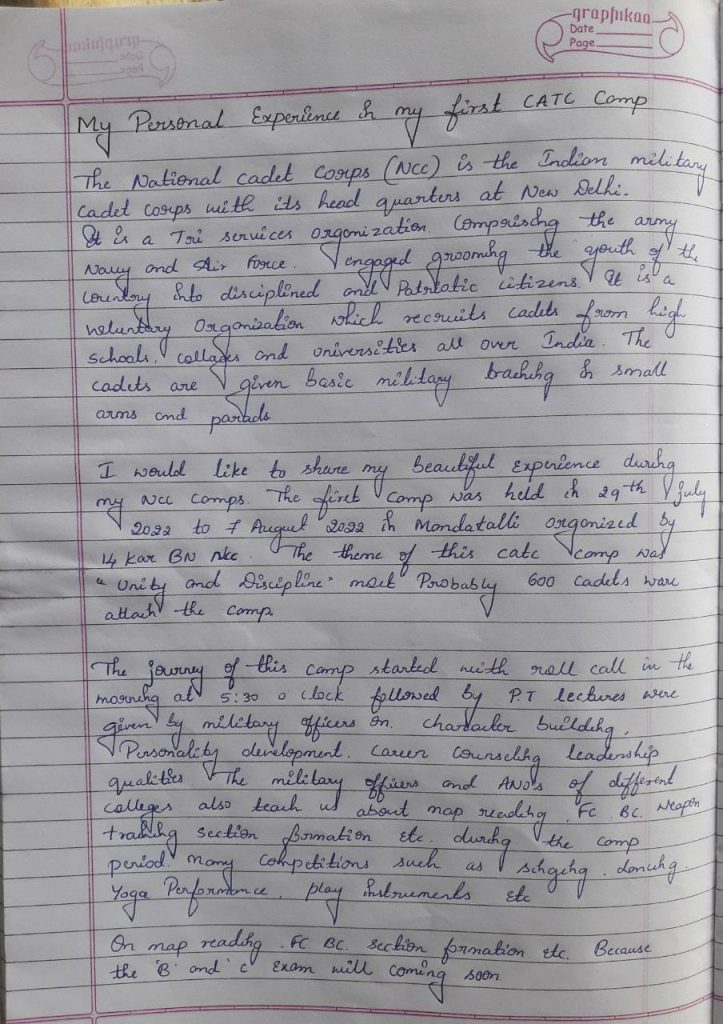 graphikaa
Date
Page
My Personal Experience in my first CATC Camp
The National cadet corps (NCC) is the Indian military
cadet corps with its head quarters at New Delhi.
It is a Tri services organization. Comprising the army
Navy and Air Force. engaged grooming the youth of the
country into disciplined and Patriotic citizens. It is a
voluntary Organization which recruits cadets from high
schools, collages and universities all over India. The
cadets are given basic military traching in small
arms and parads
I would like to share my beautiful experience during
my NCC camps. The first camp was held in 29th july
2022 to 7 August 2022 in Mandatalli organized by
14 kar BN ncc. The theme of this catc camp was
"Unity and Discipline" most Probably 600 cadets ware
attach the camp.
The journey of this camp started with roll call in the
morning at 5:30 o clock followed by P.T lectures were
given by military officers on. character building,
Personality development. career counseling leadership
qualities The military officers and ANO's of different
colleges also teach us about map reading. FC BC. Weapon
training section formation etc. during the camp
period. many compititions such as singing. dancing.
Yoga Performance, play instruments etc
On map reading. FC BC. section formation etc. Because
the 'B' and 'C' exam will coming soon.